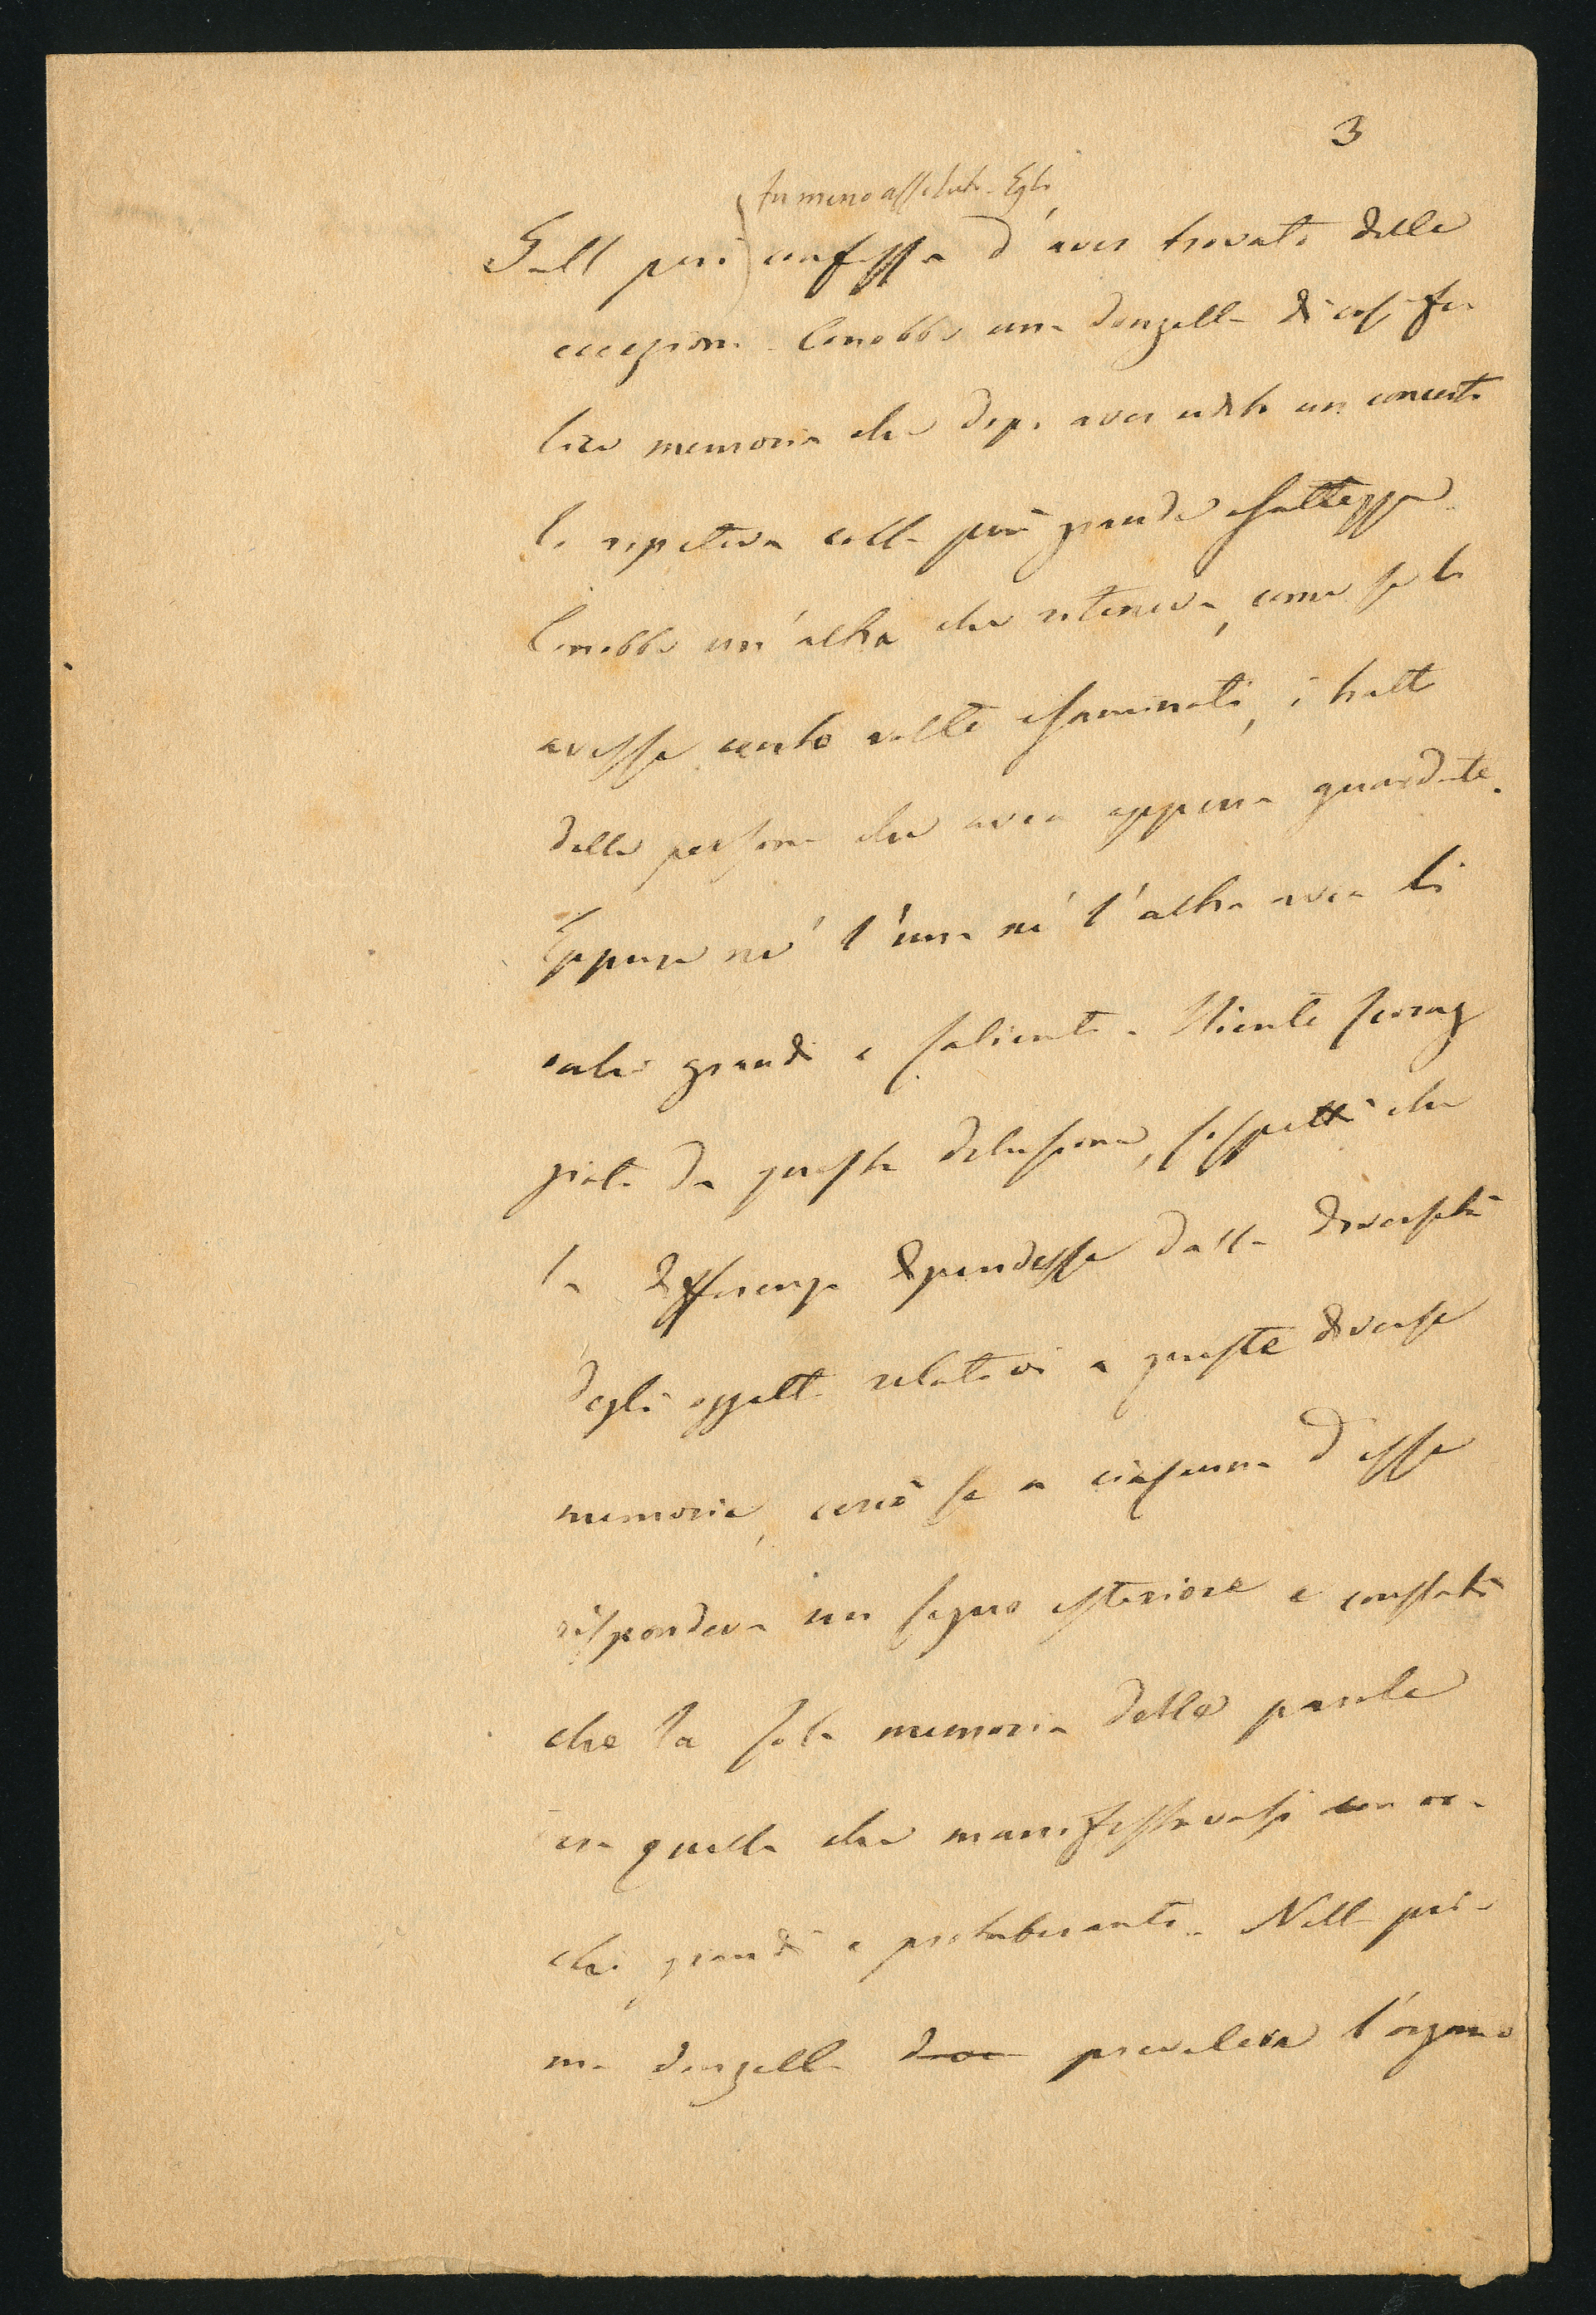 3
fu meno assoluto. Egli
Gall però confessa d'aver trovato delle
eccezioni. Conobbe una donzella di così fe
lice memoria che dopo aver udito un concerto
lo ripeteva colla più grande esattezza.
Conobbe un'altra che riteneva, come se li
avesse cento volte esaminati, i tratti
delle persone che avea appena guardate.
Eppure né l'una né l'altra avea li
occhi grandi e salienti. Niente scorag
giato da questa delusione, sospettò che
la differenza dipendesse dalla diversità
degli oggetti relativi a queste diverse
memorie, cercò se a ciascuna d'esse
rispondeva un segno esteriore e constatò
che la sola memoria delle parole
era quella che manifestavasi con oc-
chi grandi e protuberanti. Nella pri-
ma donzella prevaleva l'organo